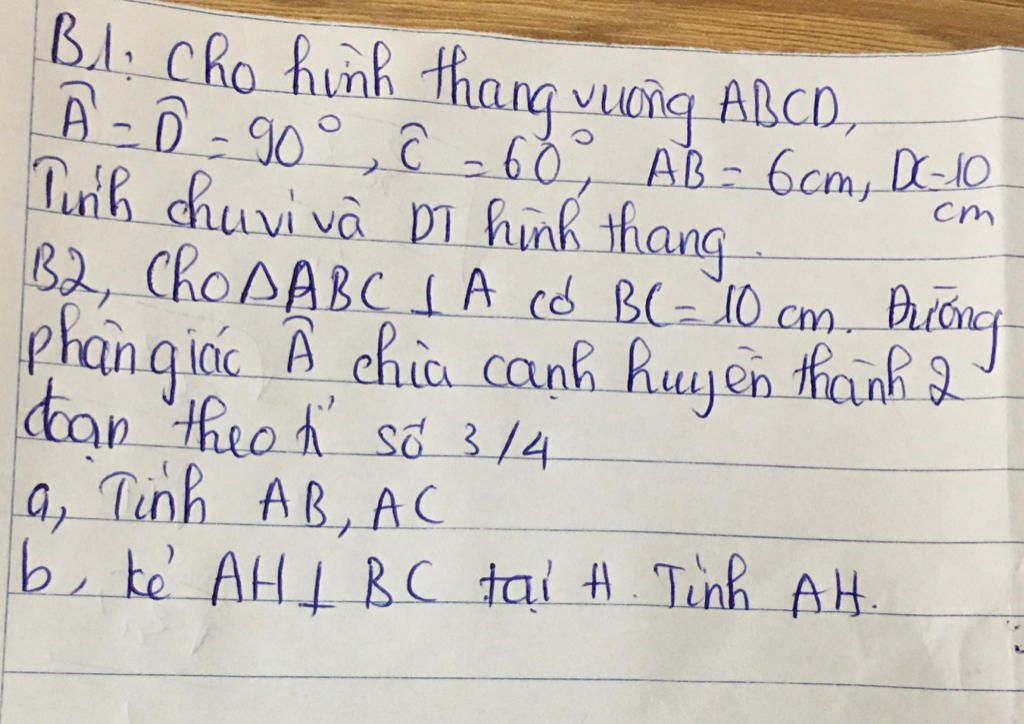 B1: Cho hình thang vuông ABCD,
Â = D̂ = 90°, Ĉ = 60°, AB = 6cm, DC=10
cm
Tính chu vi và DT hình thang.
B2, Cho ΔABC ⊥ A có BC = 10 cm. Đường
phân giác Â chia cạnh huyền thành 2
đoạn theo tỉ số 3/4
a, Tính AB, AC
b, kẻ AH ⊥ BC tại H. Tính AH.